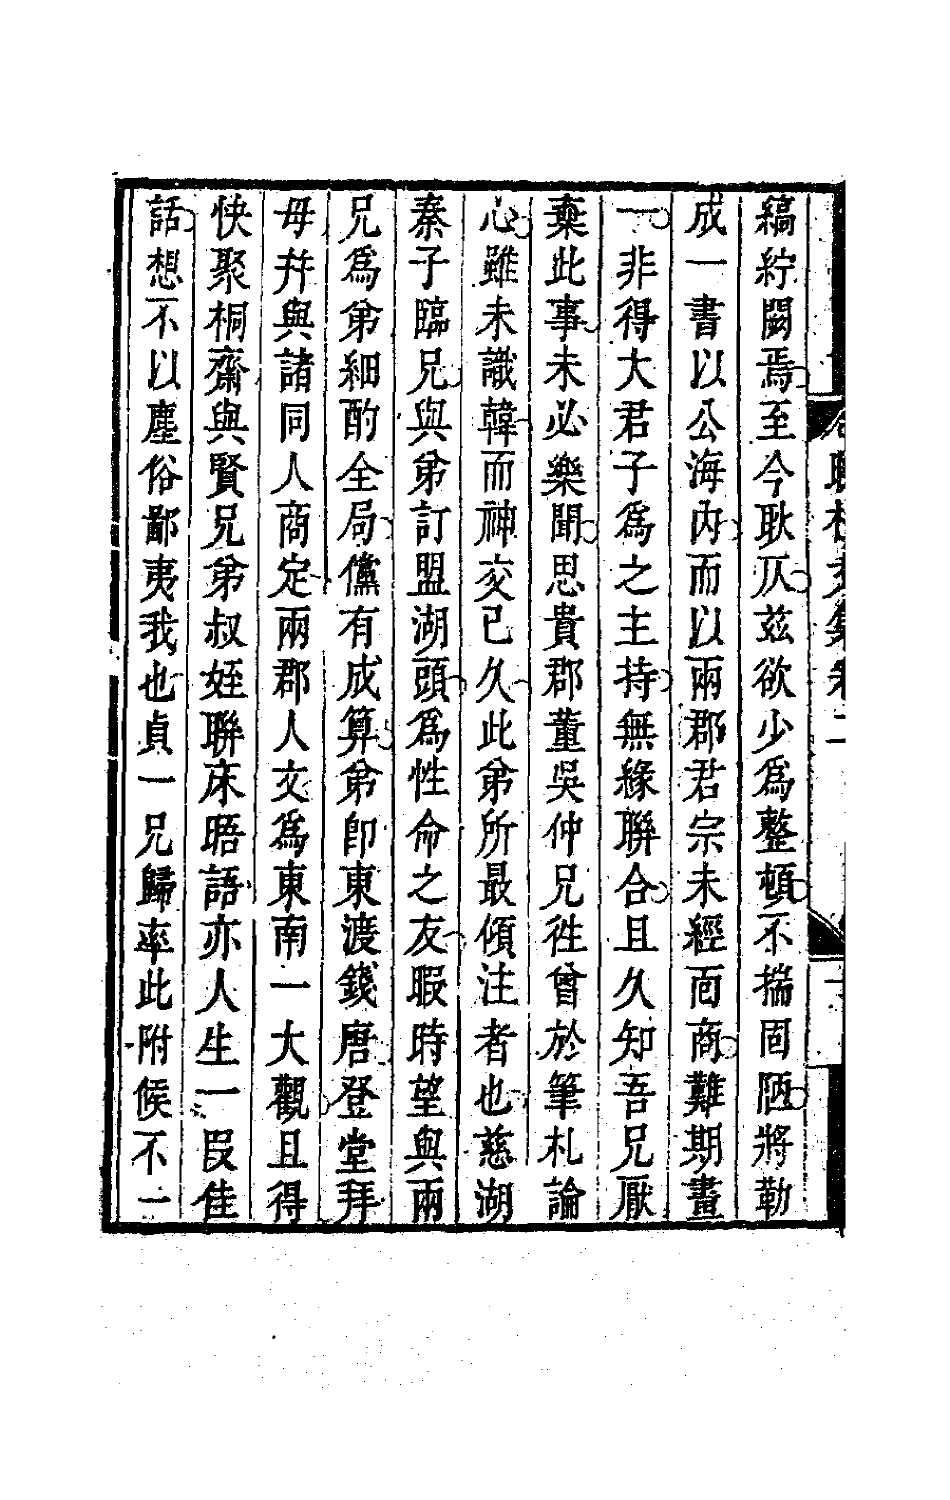 縞紵闕焉至今耿仄茲欲少爲整頓不揣固陋將勒
成一書以公海內而以兩郡君宗未經面商難期畫
一非得大君子爲之主持無緣聯合且久知吾兄厭
棄此事未必樂聞思貴郡董吳仲兄徃曾於筆札論
心雖未識韓而神交已久此弟所最傾注者也慈湖
秦子臨兄與弟訂盟湖頭爲性命之友暇時望與兩
兄爲弟細酌全局儻有成算弟卽東渡錢唐登堂拜
母幷與諸同人商定兩郡人文爲東南一大觀且得
快聚桐齋與賢兄弟叔姪聯床晤語亦人生一段佳
話想不以塵俗鄙夷我也貞一兄歸率此附候不一